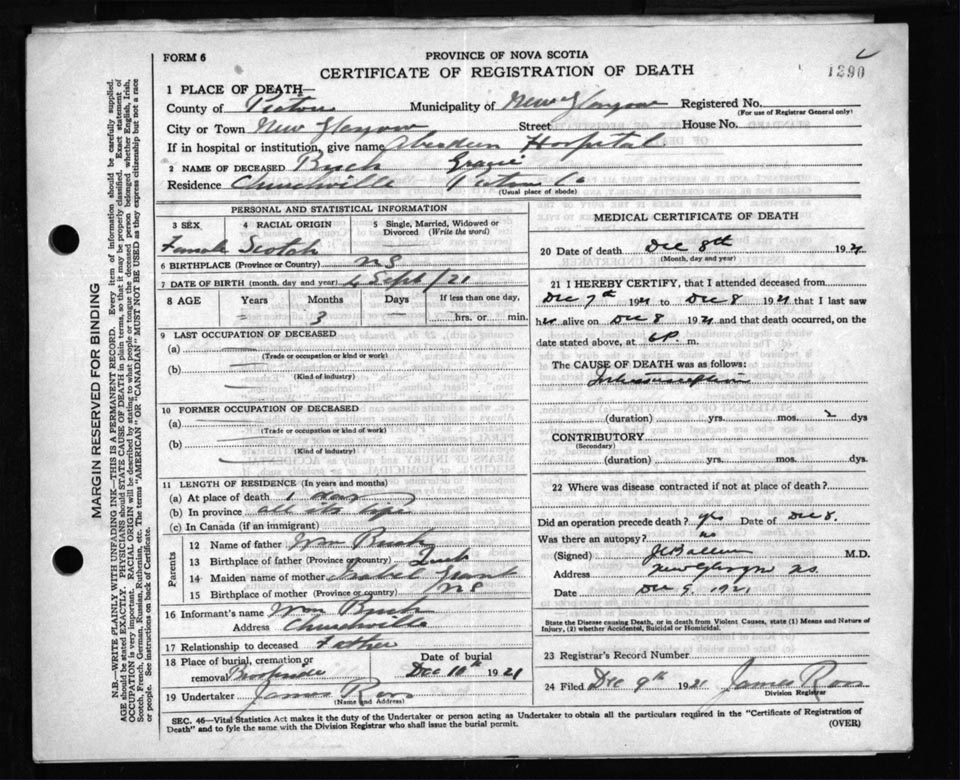 FORM 6
PROVINCE OF NOVA SCOTIA
CERTIFICATE OF REGISTRATION OF DEATH
1390
1 PLACE OF DEATH—
County of Pictou Municipality of New Glasgow Registered No.
(For use of Registrar General only)
City or Town New Glasgow Street House No.
If in hospital or institution, give name Aberdeen Hospital
2 NAME OF DECEASED Bush Gracie
Residence Churchville Pictou Co
(Usual place of abode)
PERSONAL AND STATISTICAL INFORMATION
3 SEX 4 RACIAL ORIGIN 5 Single, Married, Widowed or Divorced (Write the word)
Female Scotch
6 BIRTHPLACE (Province or Country) NS
7 DATE OF BIRTH (month, day and year) 4 Sept/21
8 AGE Years Months Days If less than one day,
3 — hrs. or min.
9 LAST OCCUPATION OF DECEASED
(a)
(Trade or occupation or kind or work)
(b)
(Kind of industry)
10 FORMER OCCUPATION OF DECEASED
(a)
(Trade or occupation or kind or work)
(b)
(Kind of industry)
11 LENGTH OF RESIDENCE (In years and months)
(a) At place of death 1 day
(b) In province all its life
(c) In Canada (if an immigrant)
Parents
12 Name of father Wm Bush
13 Birthplace of father (Province or country)
14 Maiden name of mother Isabel Grant
15 Birthplace of mother (Province or country) NS
16 Informant's name Wm Bush
Address Churchville
17 Relationship to deceased Father
18 Place of burial, cremation or removal Date of burial
Brookside Dec 10th 1921
19 Undertaker James Ross
(Name and Address)
MEDICAL CERTIFICATE OF DEATH
20 Date of death Dec 8th 1921
(Month, day and year)
21 I HEREBY CERTIFY, that I attended deceased from
Dec 7th 1921 to Dec 8 1921 that I last saw
her alive on Dec 8 1921 and that death occurred, on
date stated above, at 6P. m.
The CAUSE OF DEATH was as follows:
(duration) yrs. mos. 2 dys
CONTRIBUTORY
(Secondary)
(duration) yrs. mos. dys.
22 Where was disease contracted if not at place of death?
Did an operation precede death? yes Date of Dec 8.
Was there an autopsy? no
(Signed) M.D.
Address New Glasgow NS.
Date Dec 9 1921
State the Disease causing Death, or in death from Violent Causes, state (1) Means and Nature of Injury, (2) whether Accidental, Suicidal or Homicidal.
23 Registrar's Record Number
24 Filed Dec 9th 1921 James Ross
Division Registrar
SEC. 46—Vital Statistics Act makes it the duty of the Undertaker or person acting as Undertaker to obtain all the particulars required in the "Certificate of Registration of
Death" and to fyle the same with the Division Registrar who shall issue the burial permit. (OVER)
MARGIN RESERVED FOR BINDING
N.B.—WRITE PLAINLY WITH UNFADING INK—THIS IS A PERMANENT RECORD. Every item of information should be carefully supplied.
AGE should be stated EXACTLY. PHYSICIANS should STATE CAUSE OF DEATH in plain terms, so that it may be properly classified. Exact statement of
OCCUPATION is very important. RACIAL ORIGIN will be described by stating to what people or tongue the deceased person belonged whether English, Irish,
Scotch, French, German, Russian, Ruthenian, etc. The terms "AMERICAN" OR "CANADIAN" MUST NOT BE USED as they express citizenship but not a race
or people. See instructions on back of Certificate.